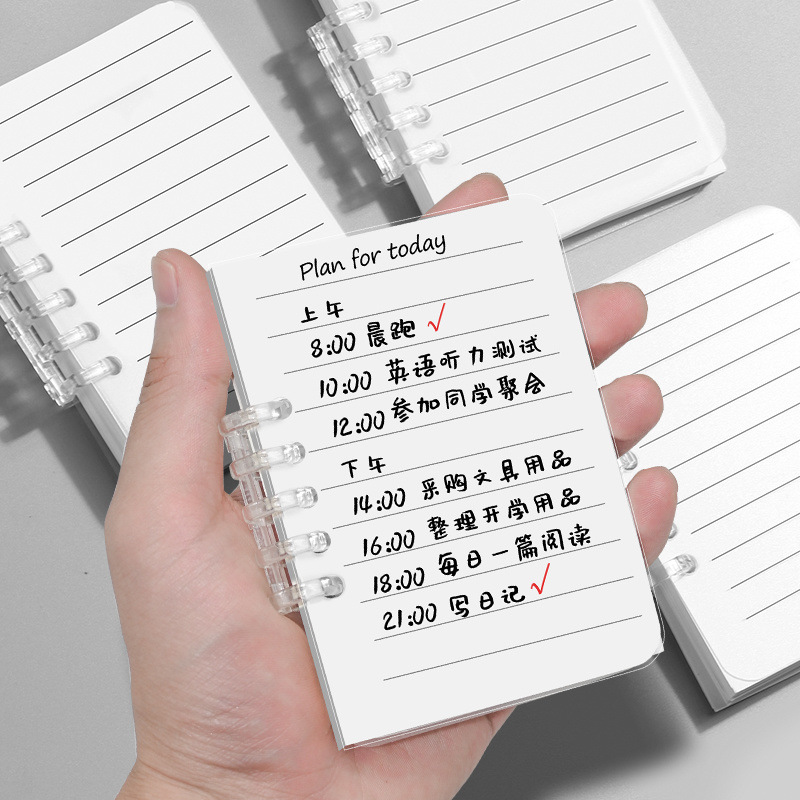 Plan for today
上午
8:00 晨跑 ✓
10:00 英语听力测试
12:00 参加同学聚会
下午
14:00 采购文具用品
16:00 整理开学用品
18:00 每日一篇阅读
21:00 写日记 ✓